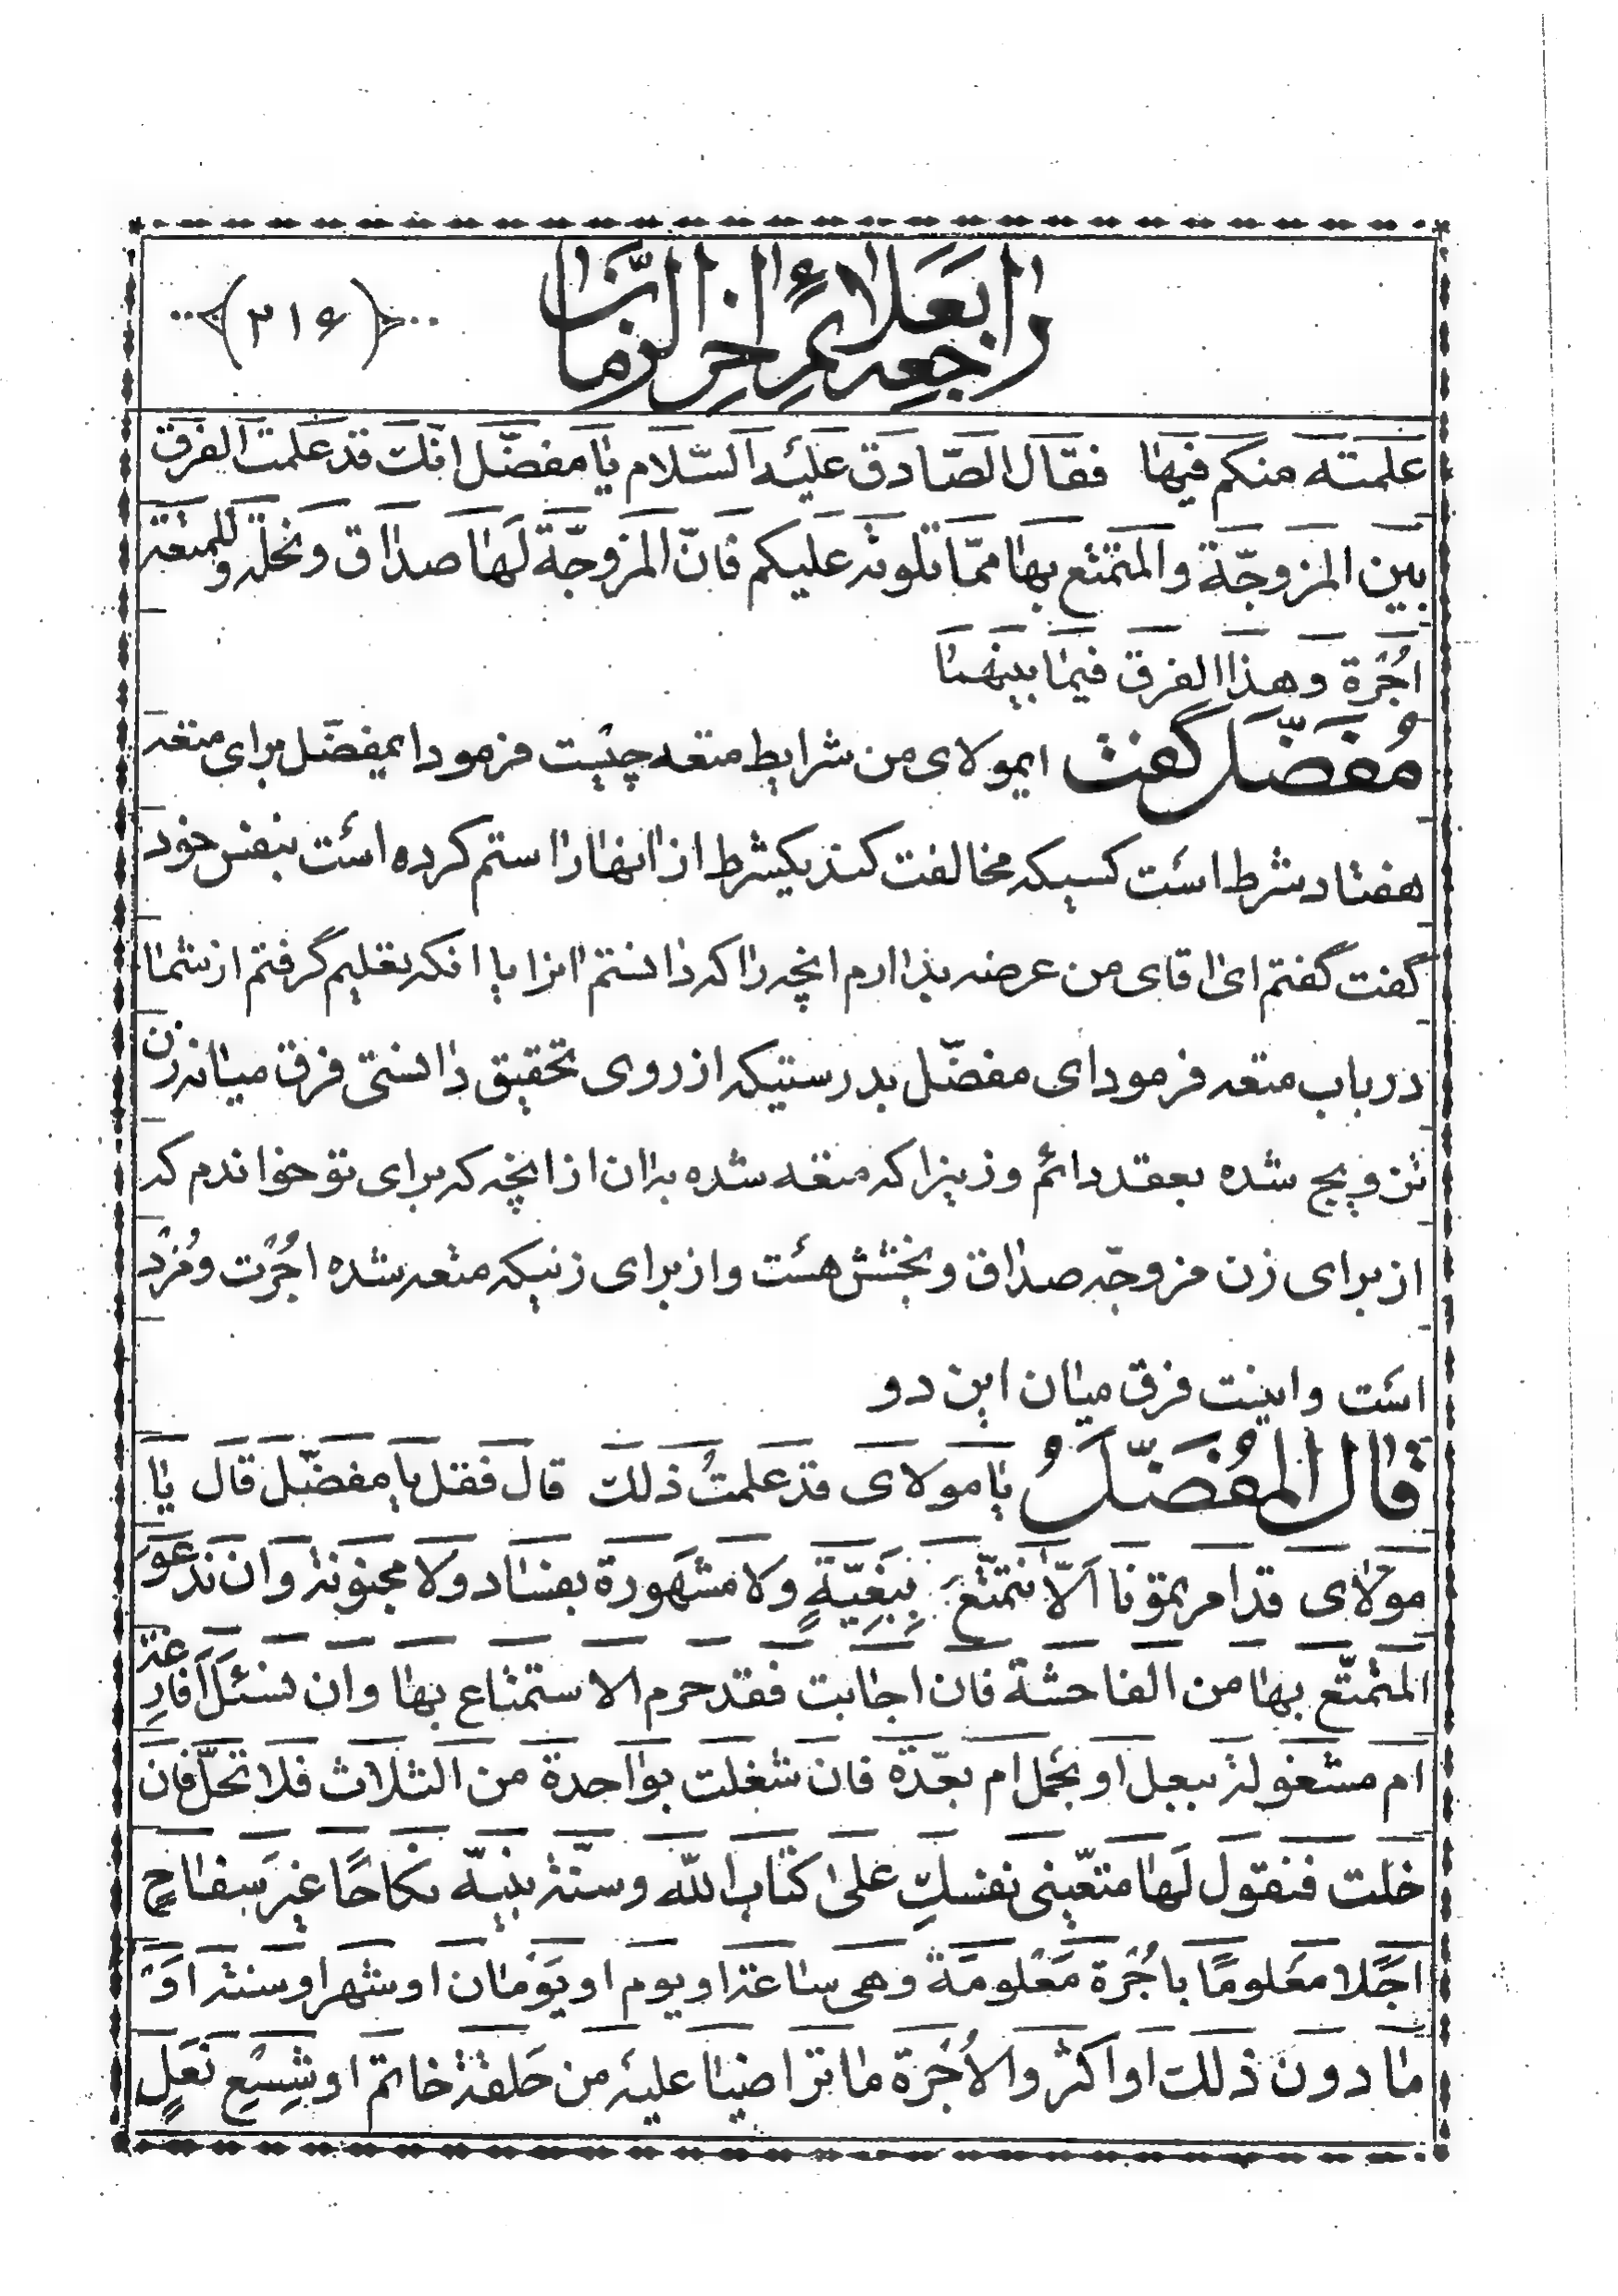 راجعه بعلائم اخر الزمان
(۳۱۶)
علمته منكم فيها فقال الصّادق عليه السّلام يا مفضّل انّك قد علمت الفرق
بين المزوجّة والمتمتع بها ممّا تلوته عليكم فانّ المزوجّة لها صداق ونحلة وللمتعة
اُجْرة وهذا الفرق فيما بينهما
مُفَضَّل گفت ايمولاى من شرايط متعه چيست فرمود ايمفضّل براى متعه
هفتاد شرط است كسيكه مخالفت كند يكشرط از انها را ستم كرده است بنفس خود
گفت گفتم اى اقاى من عرضه بدارم انچه را كه دانستم انرا با انكه تعليم گرفتم از شما
در باب متعه فرمود اى مفضّل بدرستيكه از روى تحقيق دانستى فرق ميانه زن
تزويج شده بعقد دائم وزنيرا كه متعه شده بان از انچه كه براى تو خواندم كه
از براى زن مزوجّه صداق وبخشش هست واز براى زنيكه متعه شده اجُرْت ومُزد
است واينست فرق ميان اين دو
قال المُفَضّلُ يا مولاى قد علمتُ ذلك قال فقل يا مفضّل قال يا
مَوْلاى قد امرتمونا اَلّا نتمتّعَ بِبَغِيّةٍ ولا مشهورة بفساد ولا مجنونة وان ندعو
المتمتّع بها من الفاحشة فان اجابت فقد حرم الاستمتاع بها وان نسئل افارغة
ام مشغولة ببعل او بحمل ام بعدّة فان شغلت بواحدة من الثلاث فلا تحلّ فان
خلت فنقول لها متعّينى نفسكِ على كتاب اللّه وسنّة نبيّه نكاحًا غير سفاحٍ
اجَلًا معَلومًا باجُرة مَعْلومَة وهى ساعة او يوم او يَوْمان او شهر او سنة اوْ
ما دون ذلك او اكثر والاُجْرة ما تراضيا عليه من حَلقة خاتم او شِسْعِ نَعَلٍ